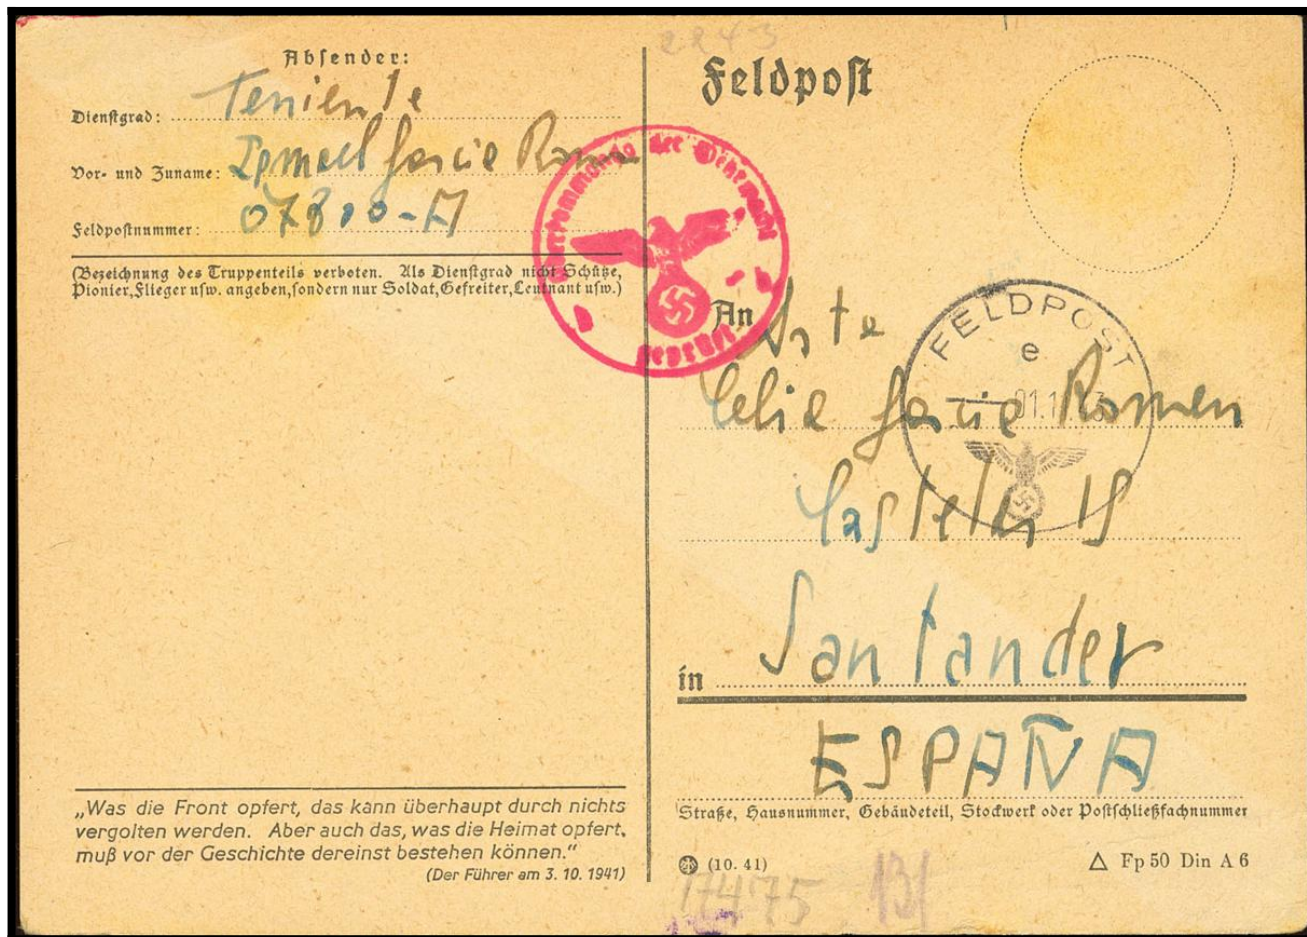 2243
Absender:
Dienstgrad: Teniente
Vor- und Zuname: Ismael Garcia Roman
Feldpostnummer: 07800-A
(Bezeichnung des Truppenteils verboten. Als Dienstgrad nicht Schütze,
Pionier, Flieger usw. angeben, sondern nur Soldat, Gefreiter, Leutnant usw.)
„Was die Front opfert, das kann überhaupt durch nichts
vergolten werden. Aber auch das, was die Heimat opfert,
muß vor der Geschichte dereinst bestehen können.“
(Der Führer am 3. 10. 1941)
Oberkommando der Wehrmacht
geprüft
Feldpost
FELDPOST
e
An Srta
Celia Garcia Roman
Castelar 15
in Santander
ESPAÑA
Straße, Hausnummer, Gebäudeteil, Stockwerk oder Postschließfachnummer
(10. 41)
△ Fp 50 Din A 6
17475 131